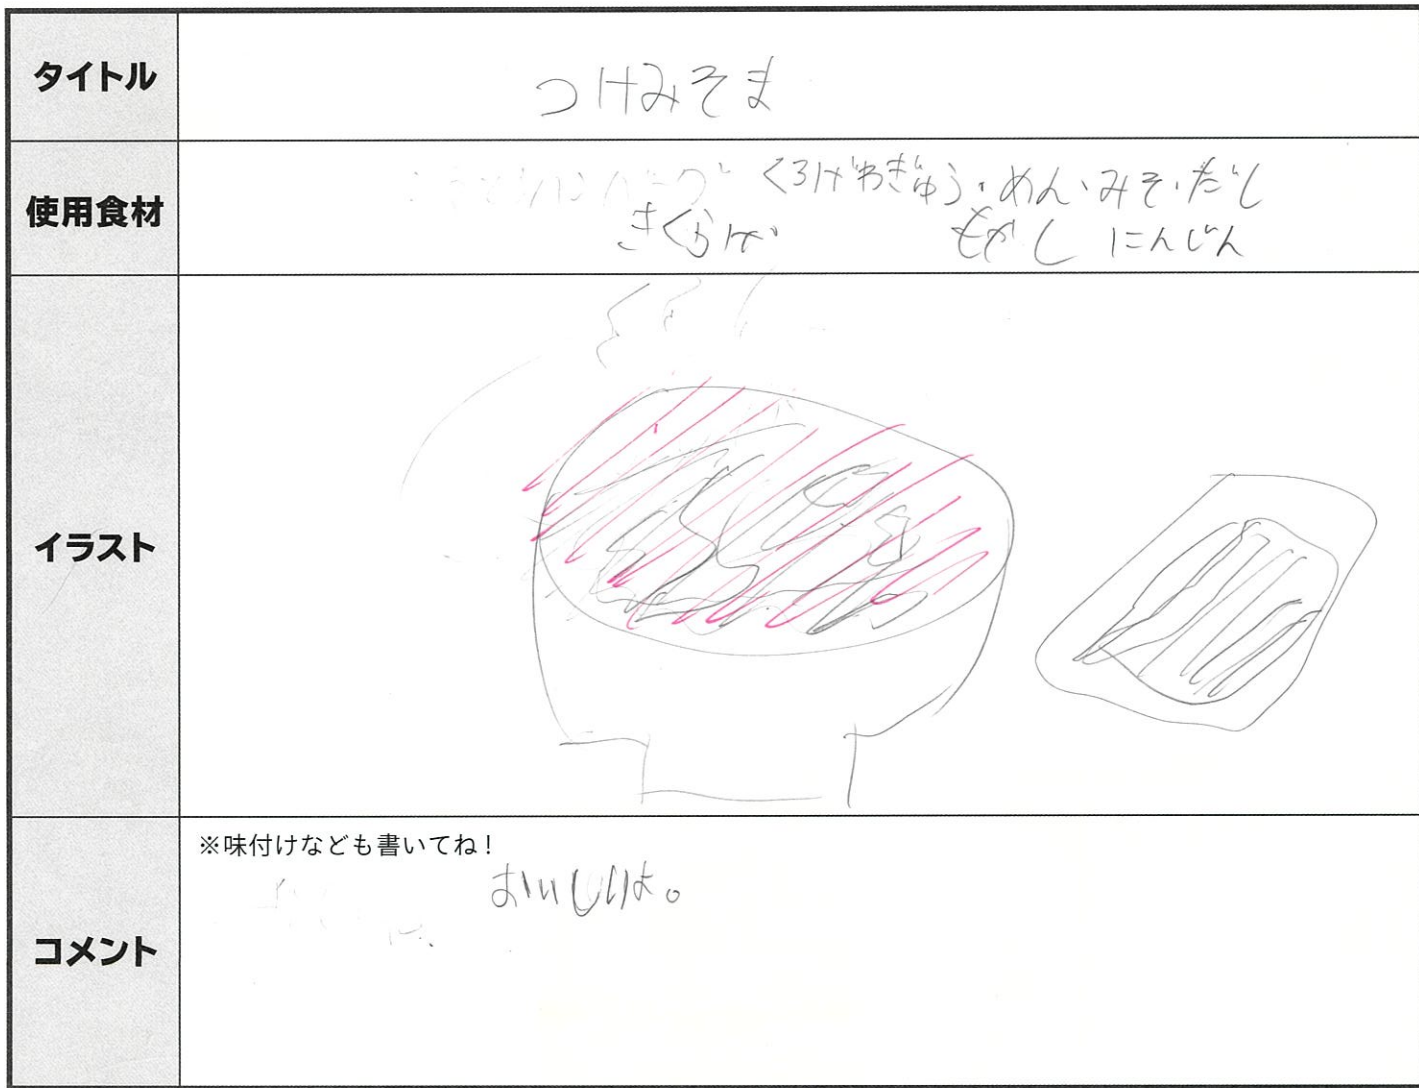 タイトル
つけみそま
使用食材
くろげわぎゅう・めん・みそ・だし
きくらげ もやし にんじん
イラスト
※味付けなども書いてね!
おいしいよ。
コメント